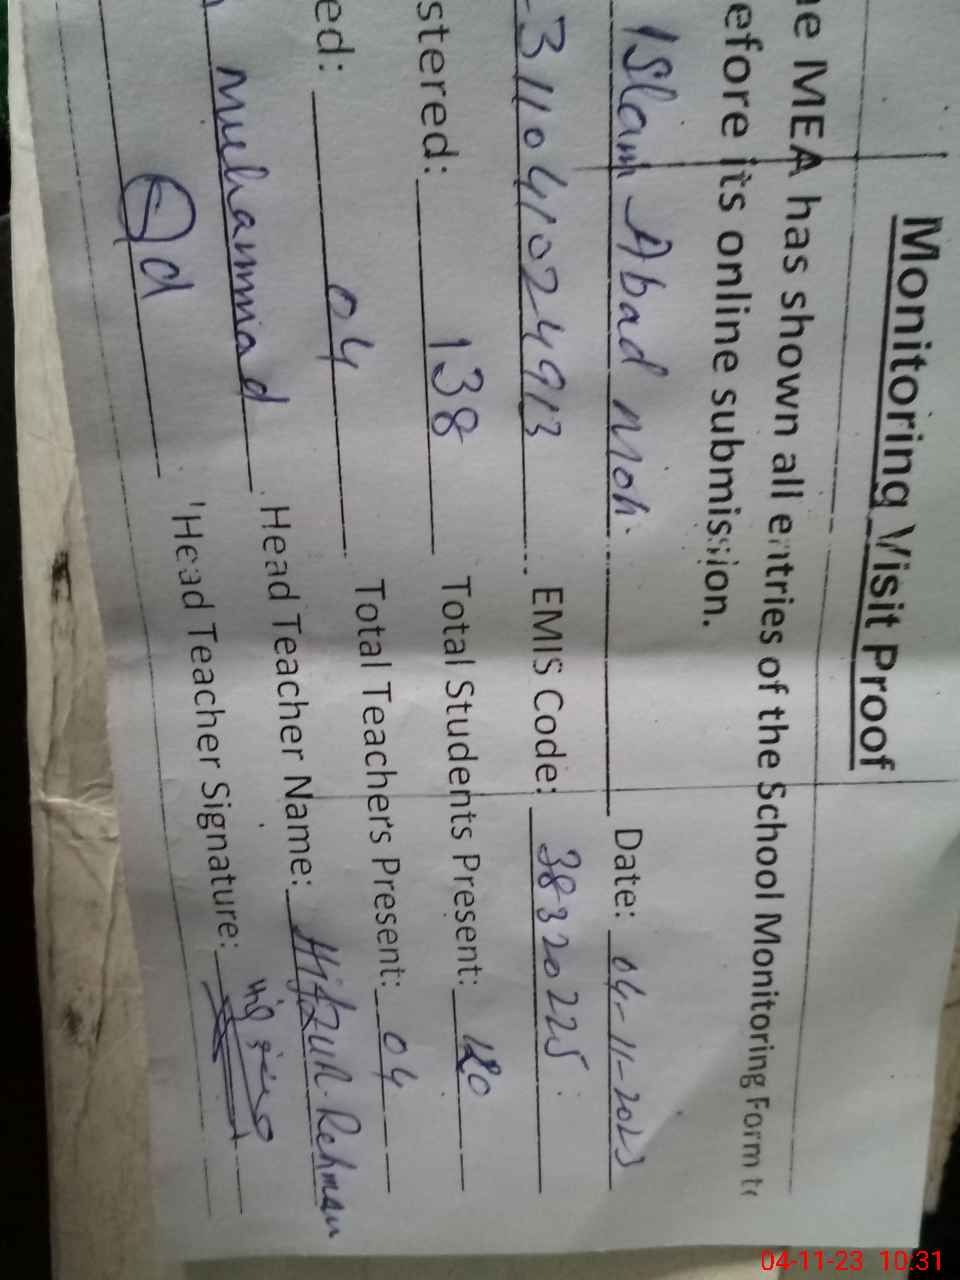 Monitoring Visit Proof
e MEA has shown all entries of the School Monitoring Form to
efore its online submission.
Islam Abad Moh. Date: 04-11-2023
311041024913 EMIS Code: 38320225
stered: 138 Total Students Present: 120
ed: 04 Total Teachers Present: 04
Muhammad Head Teacher Name: Hifzur.Rehman
Head Teacher Signature:
04-11-23 10:31